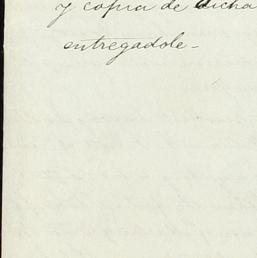 y copia de dicha
entregadole-